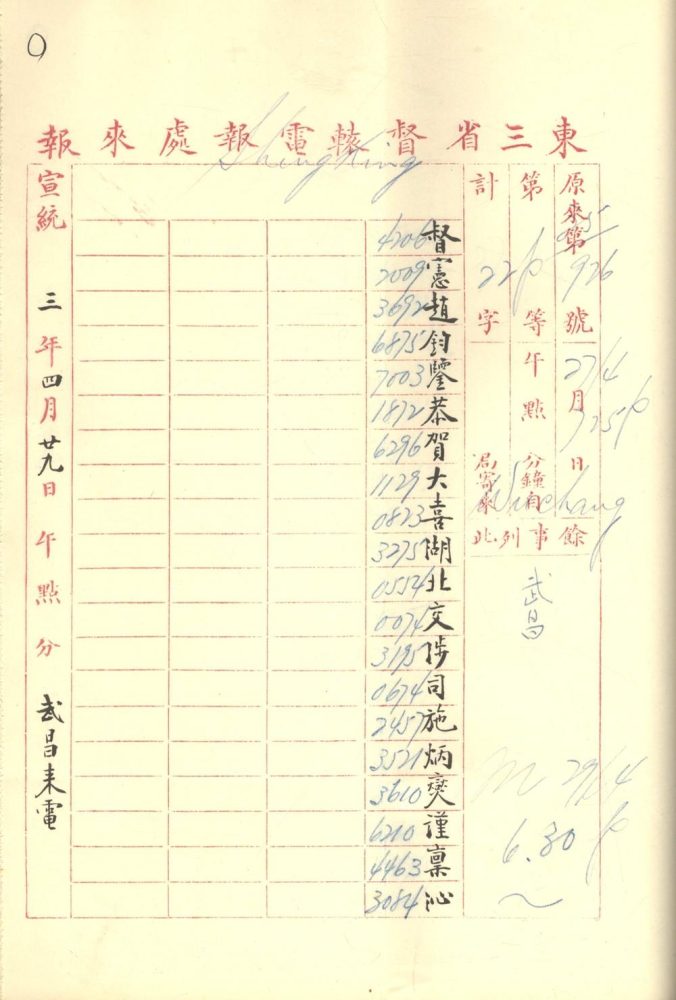 0
東三省督轅電報處來報
Shingking
原來第 926 號 27/4 月 日
第 等 午 點 725p 分鐘自
計 22 字 局寄來
Wuchang
餘事列此
武昌
29/4
6.30 p
4206 督
2009 憲
3692 趙
6875 鈞
7003 鑒
1872 恭
6296 賀
1129 大
0823 喜
3275 湖
0554 北
0074 交
3195 涉
0674 司
2457 施
3521 炳
3610 燮
6210 謹
4463 稟
3084 沁
宣統三年四月廿九日午點分 武昌來電